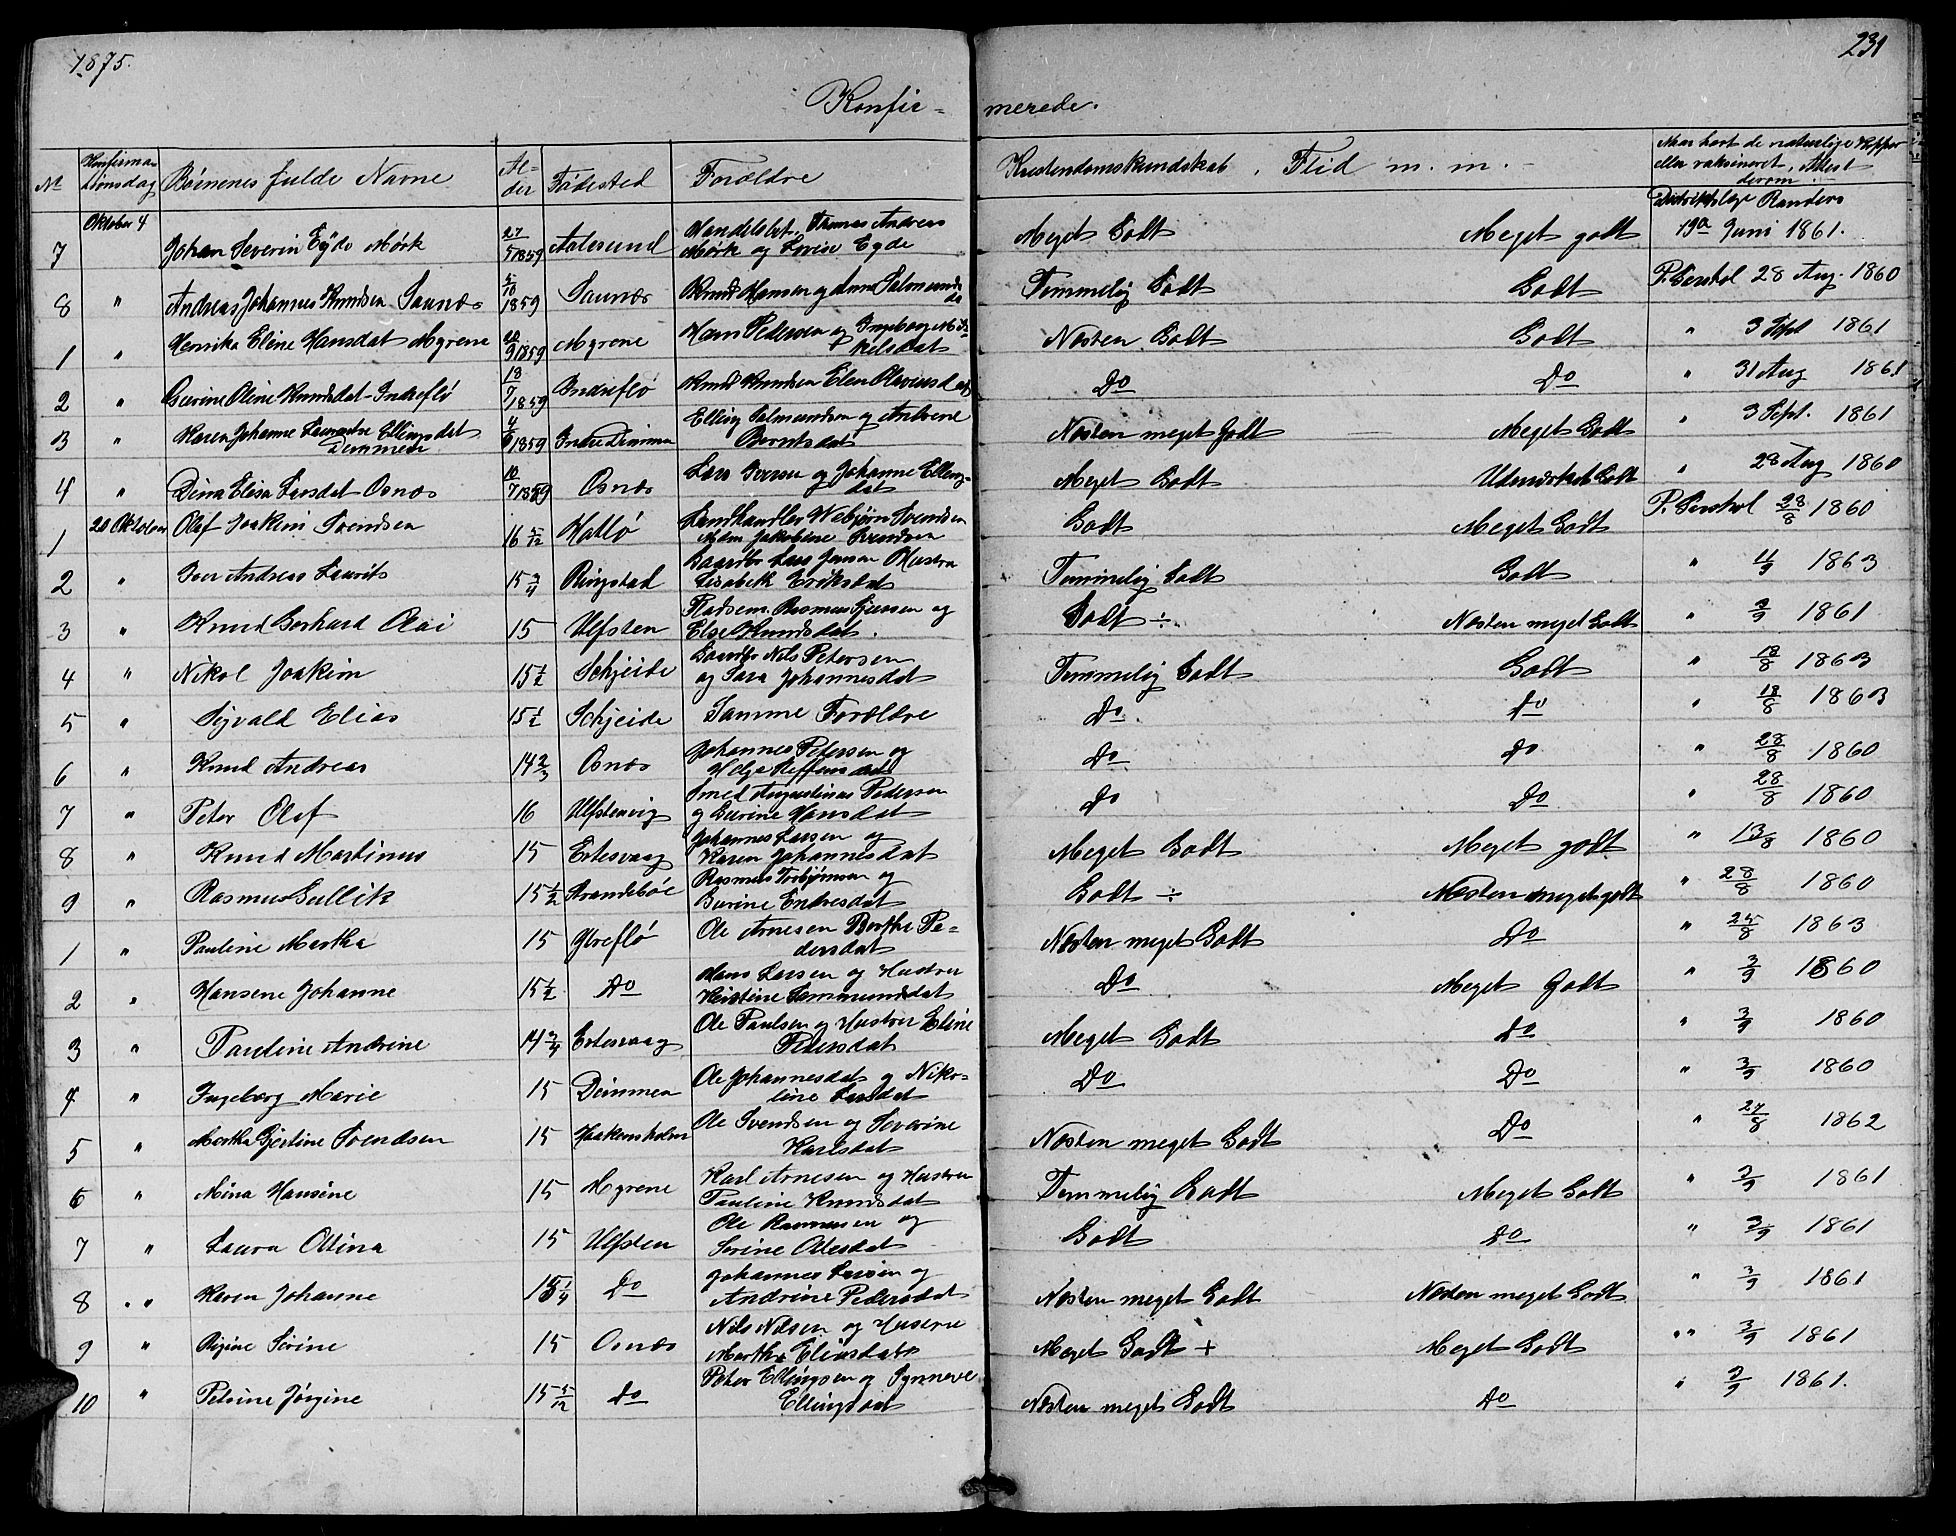 1875.
231
Konfir- merede.
No Konfirma-tionsdag Børnenes fulde Navne Al-der Fødested Forældre Kristendomskundskab. Flid m. m. - Naar havt de naturlige Kopper eller vaksineret, Attest derom. -
Distriktslæge Randers
7 Oktober 4 Johan Severin Eyde Mørk 27/5 1859 Aalesund Handelsbet. Thomas Andreas Mørk og Lovise Eyde Meget Godt Meget godt 19de Juni 1861.
8 " Andreas Johannes Knudsen Saunæs 5/10 1859 Saunæs Knud Hansen og Anne Salmundsda Temmelig Godt Godt P. Gershol 28 Aug. 1860
1 " Henrika Eline Hansdat Myrene 9 1859 Myrene Hans Pedersen og Ingeborg Mi-kelsdat Næsten Godt Godt " 3 Sept 1861
2 " Gurine Oline Knudsdat Indreflø 18/7 1859 Indreflø Knud Knudsen Elen Olavensdat Do Do " 31 Aug 1861
3 " Karen Johanne Laurentse Ellingsdat Dimmen 4/ 1859 Indre Dimmen Elling Salmundsen og Antone Berntsdat Næsten meget Godt Meget Godt " 3 Sept. 1861
4 " Dina Elisa Larsdat Osnæs 10/7 1859 Osnæs Lars Iversen og Johanne Ellings-dat Meget Godt Udmærket Godt " 28 Aug 1860
1 20 Oktober Olaf Joakim Svendsen 16 5/12 Hatlø Landhandler Webjørn Svendsen Mdm Jakobine Svendsen Godt Meget Godt P. Gershol 28/8 1860
2 " Iver Andreas Laurits 15 3/4 Ringstad Gaardbr Lars Jensen Hustru Lisabeth Eriksdat Temmelig Godt Godt " 4/9 1863
3 " Knud Gerhard Olai 15 Ulfsten Pladsem. Rasmus Sjursen og Else Knudsdat. Godt ÷ Næsten meget Godt " 3/9 1861
4 " Nikol Joakim 15 1/2 Schjeide Gaardbr Nils Petersen og Sara Johannesdat Temmelig Godt Godt " 18/8 1863
5 " Sijvald Elias 15 1/2 Schjeide Samme Forældre Do Do " 18/8 1863
6 " Knud Andreas 14 2/3 Osnæs Johannes Petersen og Helga Steffensdat Do Do " 28/8 1860
7 " Peter Olaf 16 Ulfstenvig Smed Augustinus Pedersen og Gurine Hansdat Do Do " 28/8 1860
8 " Knud Martinus 15 Ertesvaag Johannes Larsen og Karen Johannesdat Meget Godt Meget godt " 13/8 1860
9 " Rasmus Gullik 15 1/2 Strandebøe Rasmus Torbjørnsen og Gurine Endresdat Godt ÷ Næsten meget godt " 28/8 1860
1 " Pauline Martha 15 Ytreflø Ole Arnesen Berthe Pe-dersdat Næsten meget Godt Do " 25/8 1863
2 " Hansene Johanne 15 1/2 Do Hans Larsen og Hustru Kristine Sammundsdat Do Meget Godt " 3/9 1860
3 " Pauline Andrine 14 3/4 Ertesvaag Ole Paulsen og Hustru Eline Pedersdat Meget Godt Do " 3/9 1860
4 " Ingeborg Marie 15 Dimmen Ole Johannesdat og Niko-line Larsdat Do Do " 3/9 1860
5 " Martha Gjertine Svendsen 15 Haakonsholm Ole Svendsen og Severine Karlsdat Næsten meget Godt Do " 27/8 1862
6 " Mina Hansine 15 Myrene Karl Arnesen og Hustru Pauline Knudsdat Temmelig Godt Meget Godt " 3/9 1861
7 " Laura Olina 15 Ulfsten Ole Rasmussen og Serine Olesdat Godt Do " 3/9 1861
8 " " Karen Johanne 15 1/4 Do Johannes Larsen og Andrine Pedersdat Næsten meget Godt Næsten meget Godt " 3/9 1861
9 " Regine Serine 15 Osnæs Nils Nilsen og Hustru Martha Eliasdat Meget Godt + Meget Godt " " 3/9 1861
10 " Petrine Jørgine 15 5/12 Do Peter Ellingsen og Synneve Ellingsdat Næsten meget Godt Do " 3/9 1861.